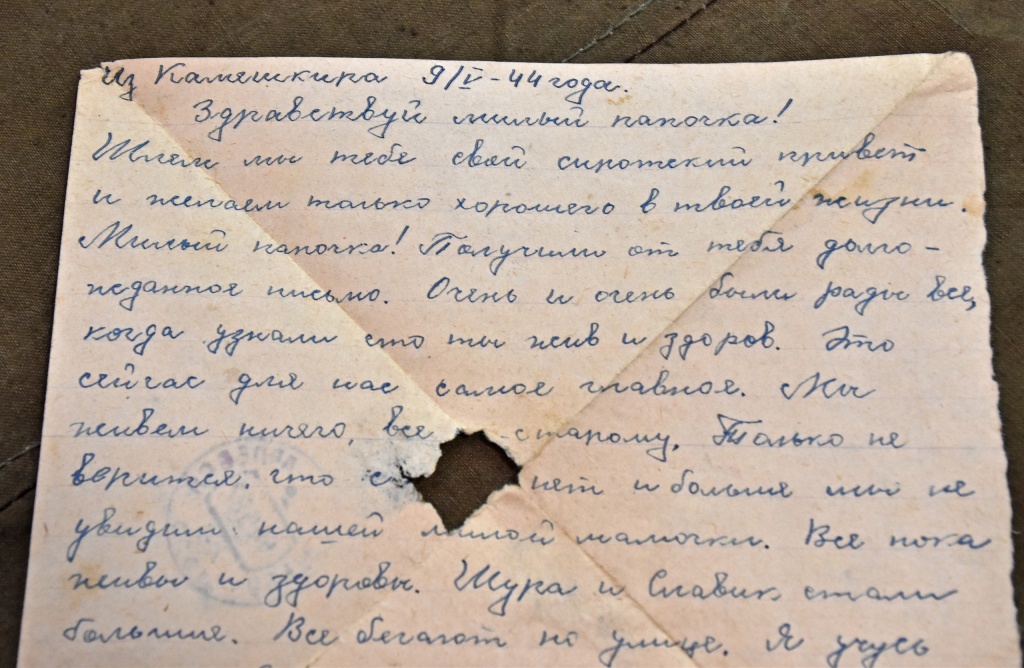 Из Камешкира 9/V-44 года.
Здравствуй милый папочка!
Шлем мы тебе свой сиротский привет
и желаем только хорошего в твоей жизни.
Милый папочка! Получили от тебя долго-
жданное письмо. Очень и очень были рады все,
когда узнали что ты жив и здоров. Это
сейчас для нас самое главное. Мы
живем ничего, все старому. Только не
верится, что нет и больше мы не
увидим нашей милой мамочки. Все пока
живы и здоровы. Шура и Славик стали
большие. Все бегают по улице. Я учусь